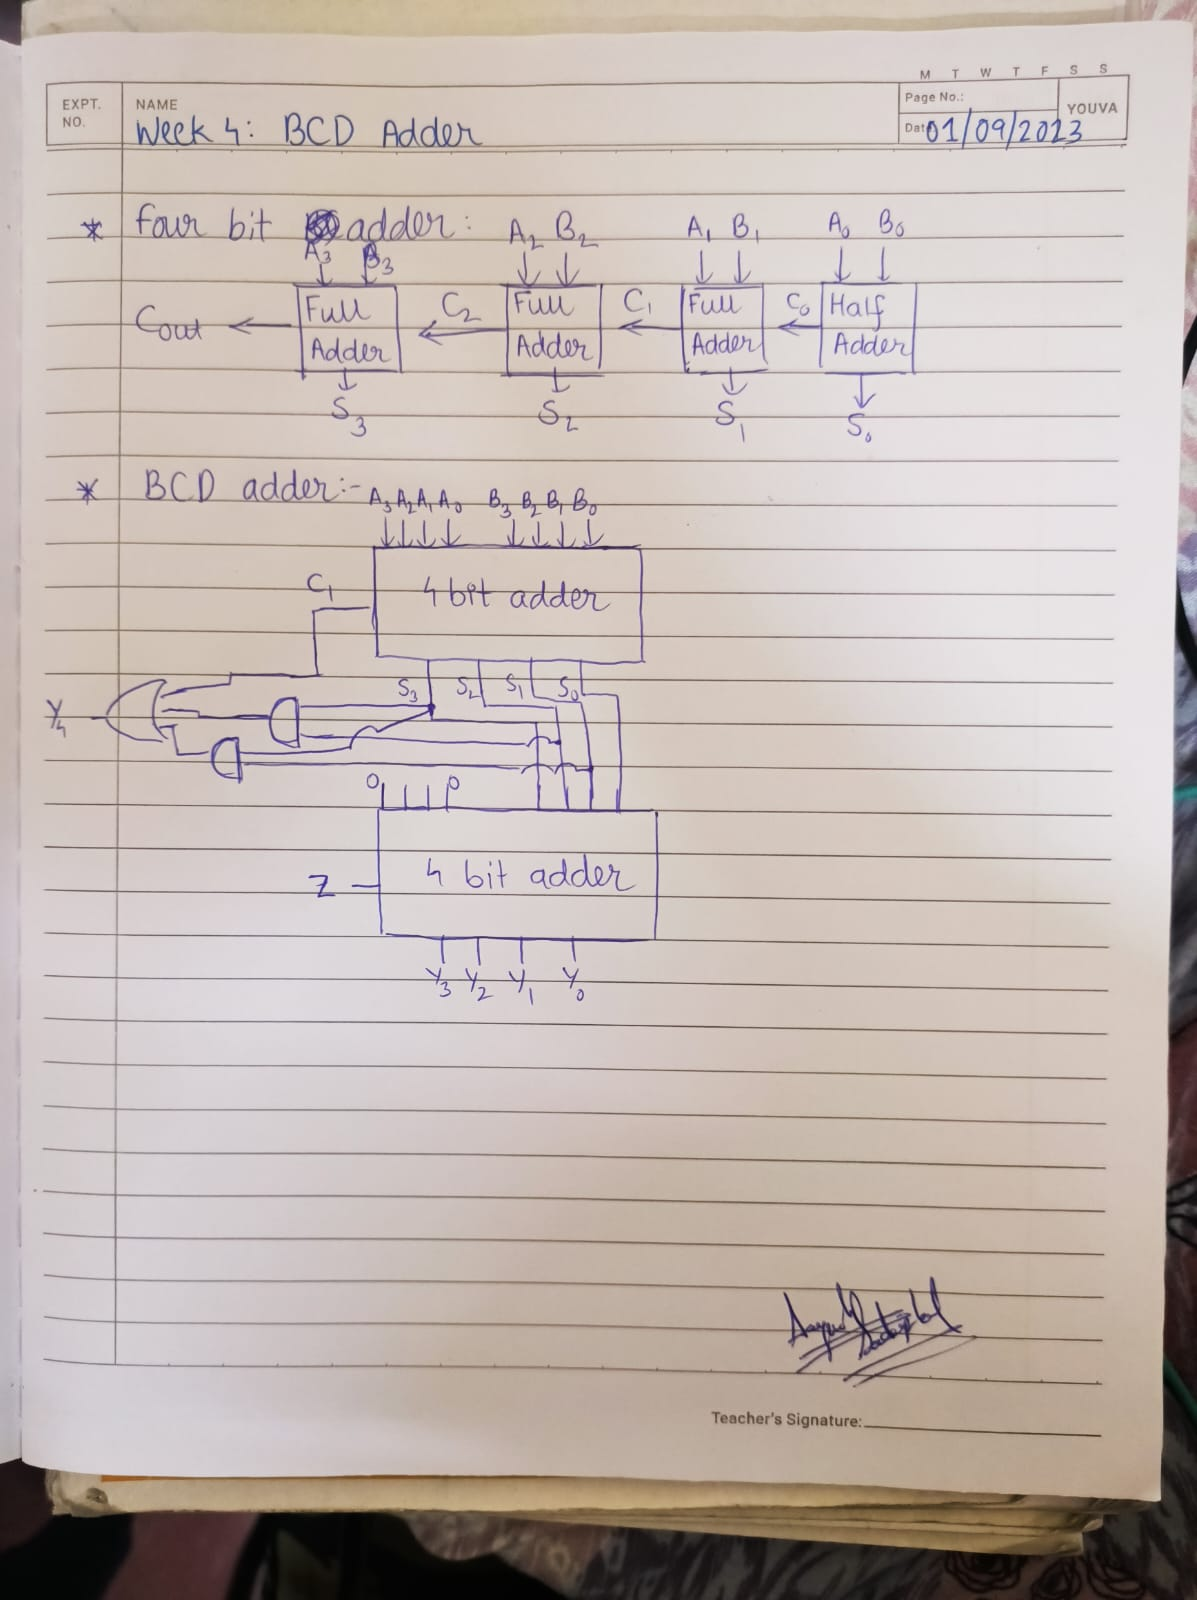 M T W T F S S
EXPT. NO.
NAME
Week 4: BCD Adder
Page No.:
Date
01/09/2023
YOUVA
* Four bit adder:
A3 B3 A2 B2 A1 B1 A0 B0
Cout Full Adder C2 Full Adder C1 Full Adder C0 Half Adder
S3 S2 S1 S0
* BCD adder:-
A3 A2 A1 A0 B3 B2 B1 B0
C1 4 bit adder
S3 S2 S1 S0
Y4
0 0
Z 4 bit adder
Y3 Y2 Y1 Y0
Teacher's Signature: